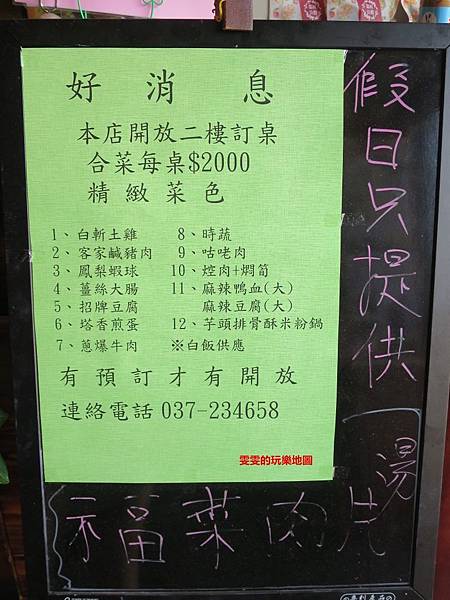 好消息
本店開放二樓訂桌
合菜每桌$2000
精緻菜色
1、白斬土雞
2、客家鹹豬肉
3、鳳梨蝦球
4、薑絲大腸
5、招牌豆腐
6、塔香煎蛋
7、蔥爆牛肉
8、時蔬
9、咕咾肉
10、焢肉+燜筍
11、麻辣鴨血(大)
麻辣豆腐(大)
12、芋頭排骨酥米粉鍋
※白飯供應
有預訂才有開放
連絡電話 037-234658
雯雯的玩樂地圖
假日只提供
福菜肉片
湯
專利產品